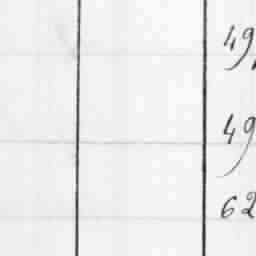 49
49
62